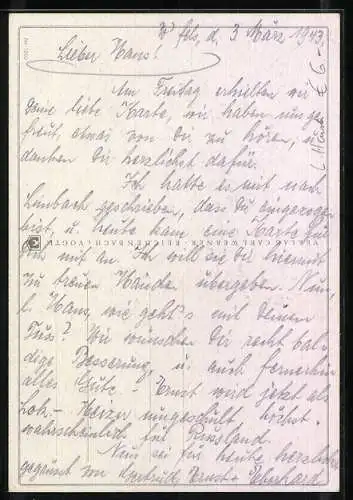 d. 3 März 1943.
Lieber Hans!
Am Freitag erhielten wir
Deine liebe Karte, wir haben uns ge-
freut, etwas von Dir zu hören, u.
danken Dir herzlichst dafür.
Ich hatte es mit nach
Limbach geschrieben, daß Du eingezogen
bist, u. heute kam eine Karte
mit an. Ich will sie Dir hiermit
zu treuen Händen übergeben. Nun,
l. Hans, wie geht's mit Deinem
Fuss? Wir wünschen Dir recht bal-
dige Besserung, u. auch fernerhin
alles Gute. – Ernst wird jetzt als
Lok.-Heizer umgeschult
wahrscheinlich für Russland.
Nun sei für heute, herzlichst
gegrüsst von Gertrud, Ernst u. Eberhard
VERLAG CARL WERNER, REICHENBACH I. VOGTL.